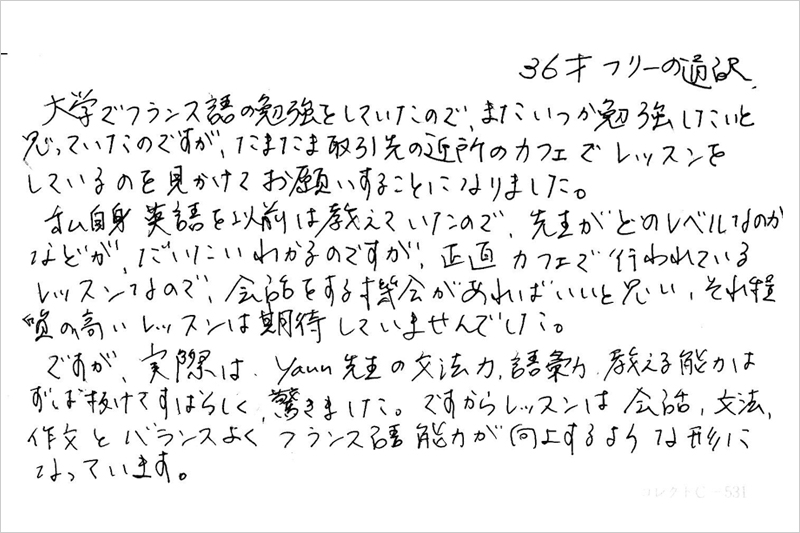 36才 フリーの通訳
大学でフランス語の勉強をしていたので、またいつか勉強したいと
思っていたのですが、たまたま取引先の近所のカフェでレッスンを
しているのを見かけてお願いすることになりました。
私自身 英語を以前は教えていたので、先生がどのレベルなのか
などが、だいたいわかるのですが、正直カフェで行われている
レッスンなので、会話をする機会があればいいと思い、それ程
質の高いレッスンは期待していませんでした。
ですが、実際は、Yann先生の文法力、語彙力、教える能力は
ずば抜けてすばらしく、驚きました。ですからレッスンは会話、文法、
作文とバランスよくフランス語能力が向上するような形に
なっています。
コレクト 531